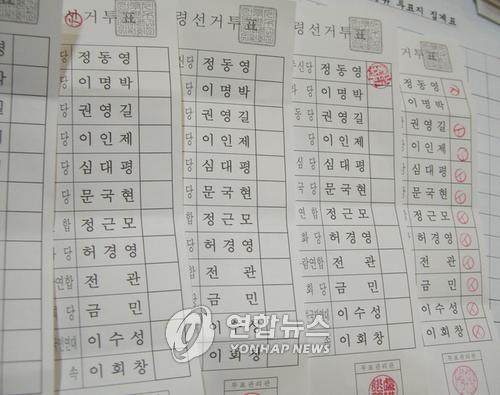 선거투표
당 정동영
당 이명박
당 권영길
당 이인제
당 심대평
당 문국현
연합 정근모
당 허경영
연합 전 관
당 금 민
이수성
속 이회창
령선거투표
신당 정동영
당 이명박
당 권영길
당 이인제
당 심대평
당 문국현
연합 정근모
당 허경영
연합 전 관
금 민
이회창
거투표
신당 정동영
당 이명박
동당 권영길
당 이인제
심당 심대평
국당 문국현
연합 정근모
화당 허경영
연합 전 관
회당 금 민
이수성
속 이회창
투표관리관
투표지 집계표
거투표
정동영
이명박
권영길
이인제
심대평
문국현
정근모
허경영
전 관
금 민
이수성
이회창
투표관리관
연합뉴스
YONHAP NEWS